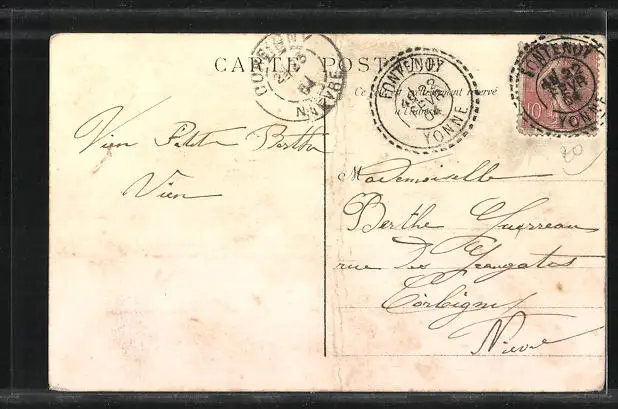 CARTE POSTALE
Ce côté est exclusivement réservé
à l'adresse
CORBIGNY
NIÈVRE
FONTENOY
YONNE
FONTENOY
YONNE
10
20
Vien Petite Berthe
Vien
Mademoiselle
Berthe Guerreau
rue des
Corbigny
Nièvre